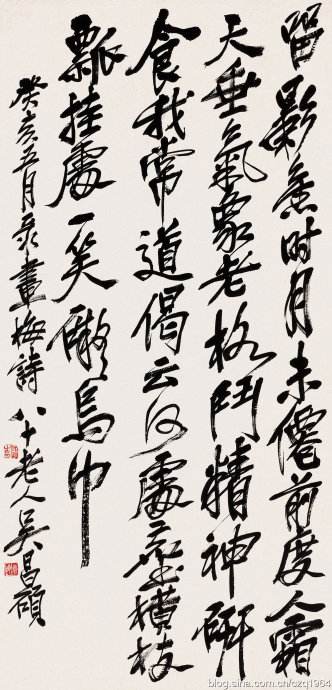 留影舊時月未僊前度人霜
天垂氣象老格鬥精神研
食我常道偈云何處塵橫枝
瓢挂處一笑烏巾
癸亥五月录畫梅詩八十老人吴昌碩
blog.sina.com.cn/czq1964